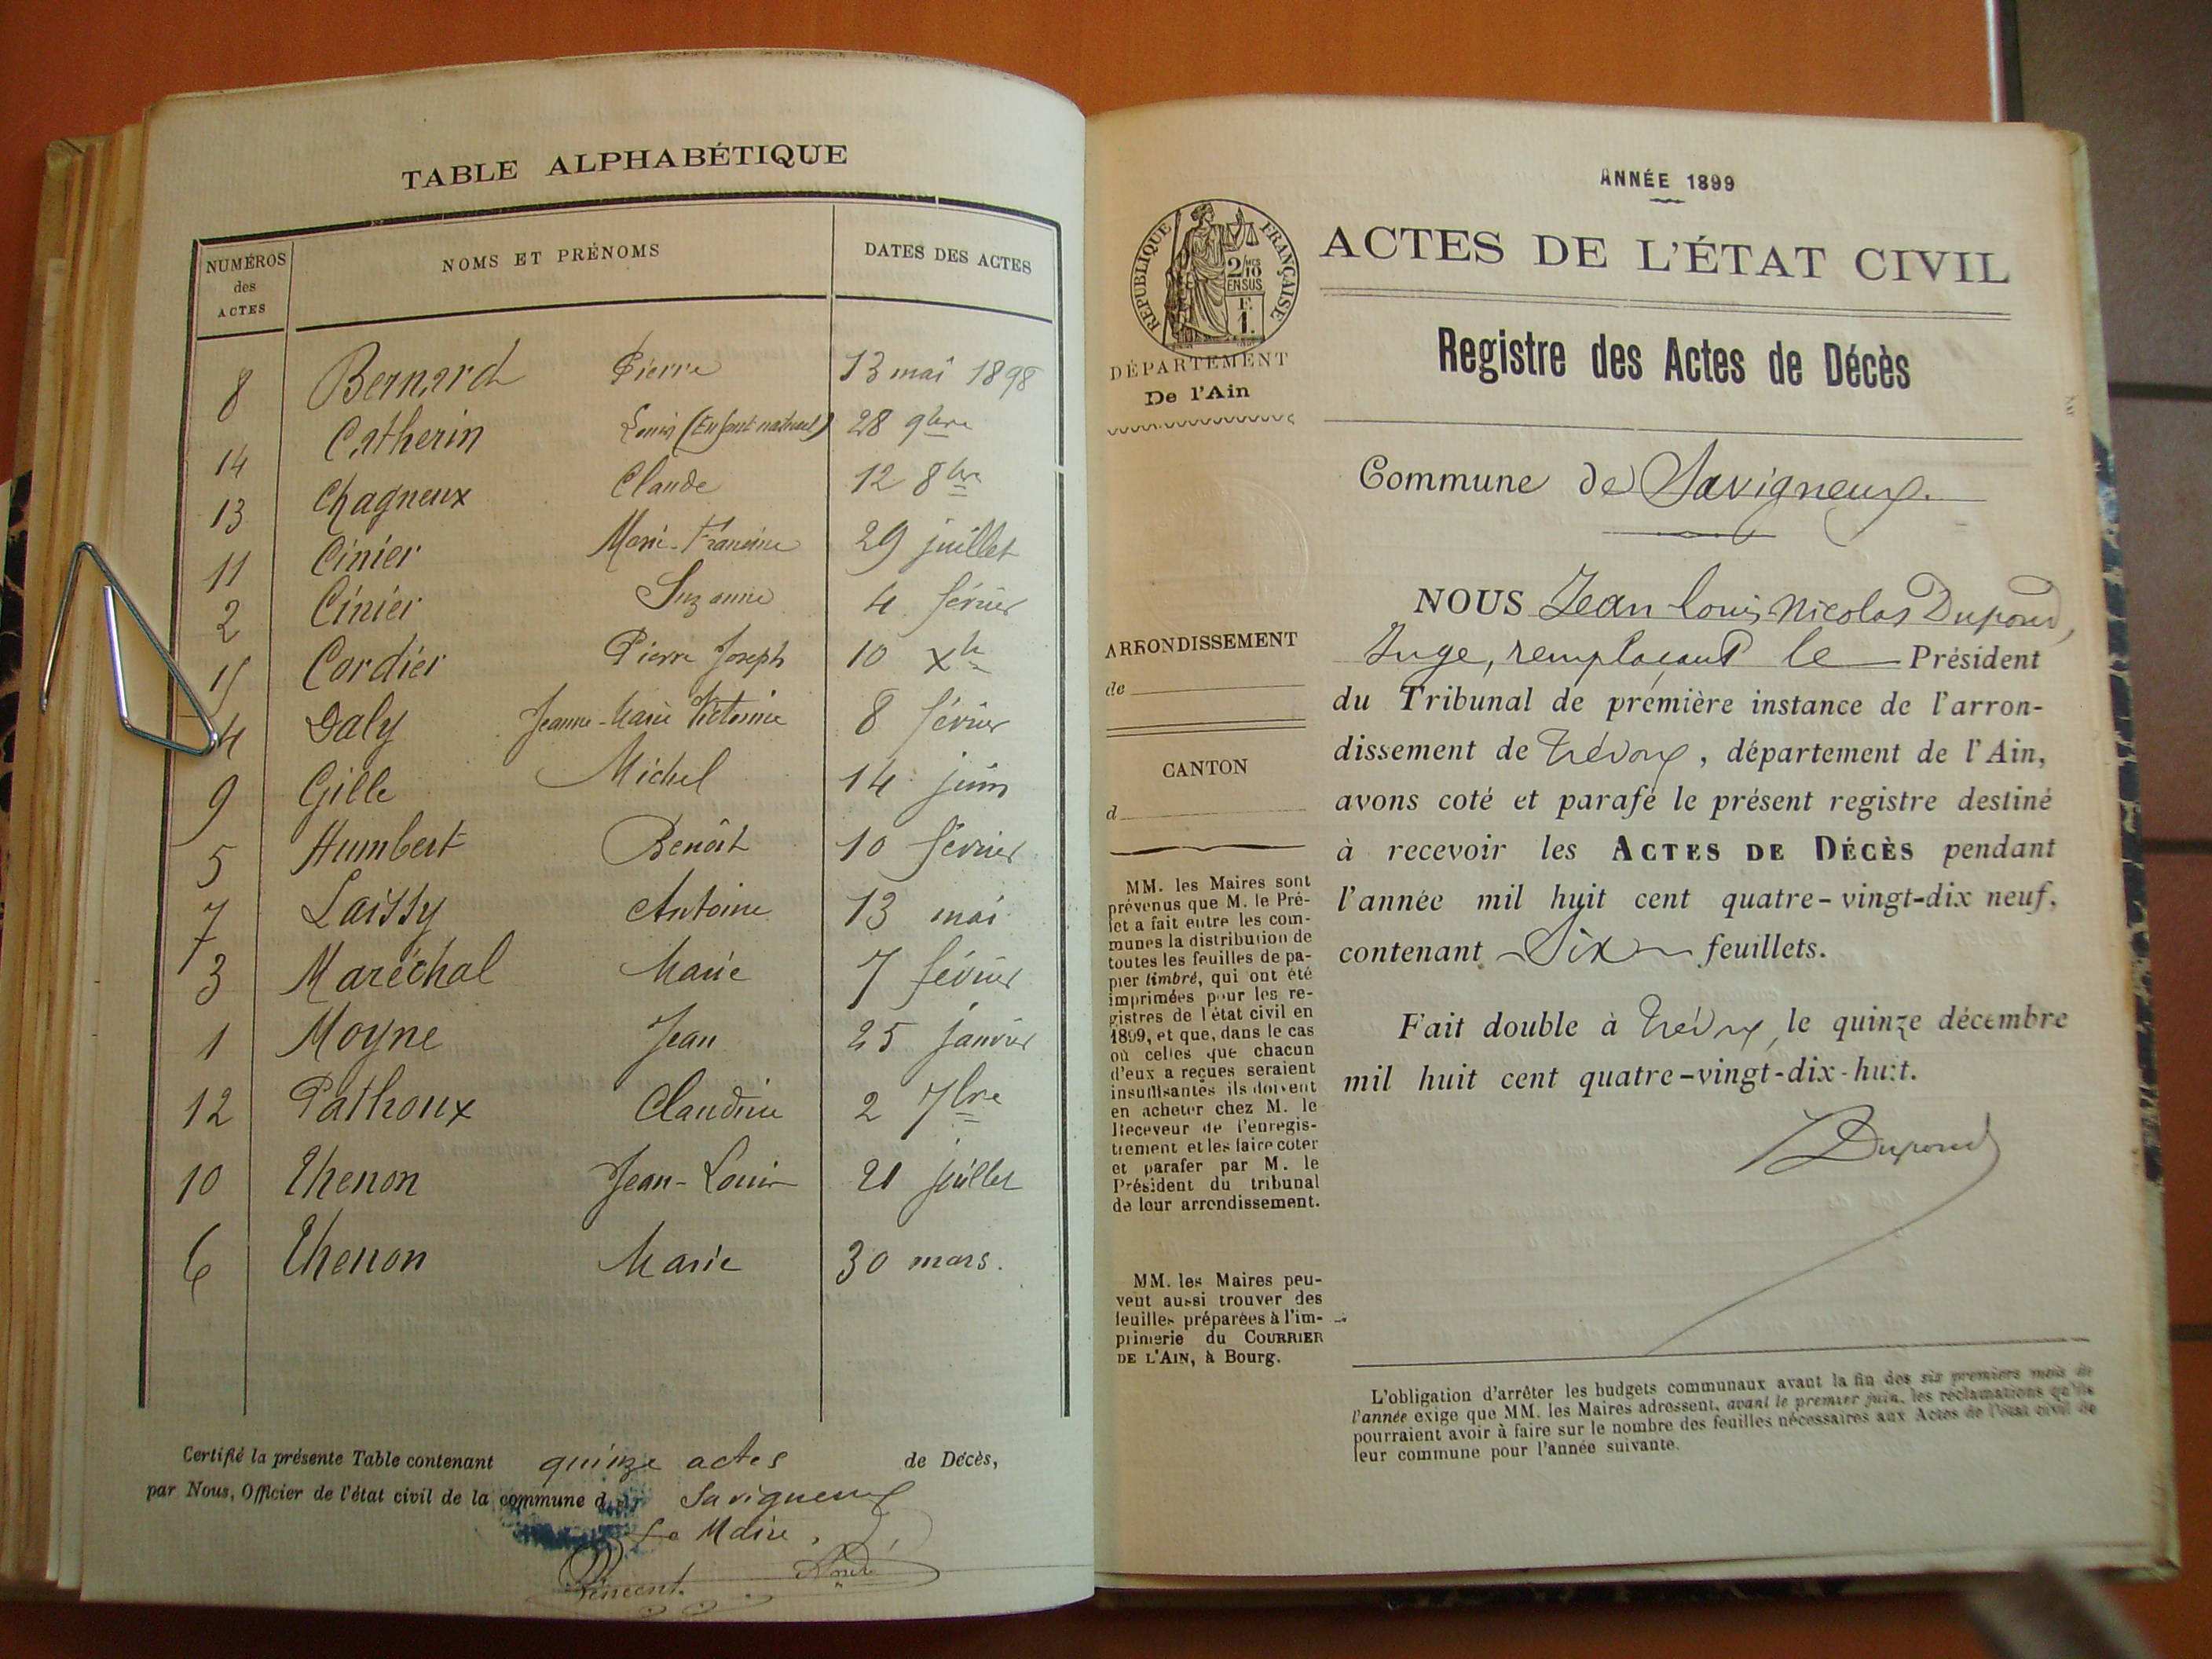 TABLE ALPHABÉTIQUE
NUMÉROS des ACTES NOMS ET PRÉNOMS DATES DES ACTES
8 Bernard Pierre 13 mai 1898
14 Catherin Louis (Enfant naturel) 28 9bre
13 Chagneux Claude 12 8bre
11 Cinier Marie-Francine 29 juillet
2 Cinier Suzanne 4 février
15 Cordier Pierre Joseph 10 Xbre
4 Daly Jeanne-Marie Victorine 8 février
9 Gille Michel 14 juin
5 Humbert Benoît 10 février
7 Laissy Antoine 13 mai
3 Maréchal Marie 7 février
1 Moyne Jean 25 janvier
12 Pathoux Claudine 2 7bre
10 Thenon Jean-Louis 21 juillet
6 Thenon Marie 30 mars.
Certifié la présente Table contenant quinze actes de Décès,
par Nous, Officier de l'état civil de la commune de Savigneux
Le Maire,
Vincent.
ANNÉE 1899
RÉPUBLIQUE FRANÇAISE
2/10 EN SUS
F. 1.
ACTES DE L'ÉTAT CIVIL
DÉPARTEMENT
De l'Ain
Registre des Actes de Décès
Commune de Savigneux.
ARRONDISSEMENT
de
CANTON
d
MM. les Maires sont
prévenus que M. le Pré-
fet a fait entre les com-
munes la distribution de
toutes les feuilles de pa-
pier timbré, qui ont été
imprimées pour les re-
gistres de l'état civil en
1899, et que, dans le cas
où celles que chacun
d'eux a reçues seraient
insuffisantes ils doivent
en acheter chez M. le
Receveur de l'enregis-
trement et les faire coter
et parafer par M. le
Président du tribunal
de leur arrondissement.
MM. les Maires peu-
vent aussi trouver des
feuilles préparées à l'im-
primerie du COURRIER
DE L'AIN, à Bourg.
NOUS Jean Louis Nicolas Dupond,
Juge, remplaçant le Président
du Tribunal de première instance de l'arron-
dissement de Trévoux, département de l'Ain,
avons coté et parafé le présent registre destiné
à recevoir les ACTES DE DÉCÈS pendant
l'année mil huit cent quatre-vingt-dix neuf,
contenant Six feuillets.
Fait double à Trévoux, le quinze décembre
mil huit cent quatre-vingt-dix-huit.
Dupond
L'obligation d'arrêter les budgets communaux avant la fin des six premiers mois de
l'année exige que MM. les Maires adressent, avant le premier juin, les réclamations qu'ils
pourraient avoir à faire sur le nombre des feuilles nécessaires aux Actes de l'état civil de
leur commune pour l'année suivante.